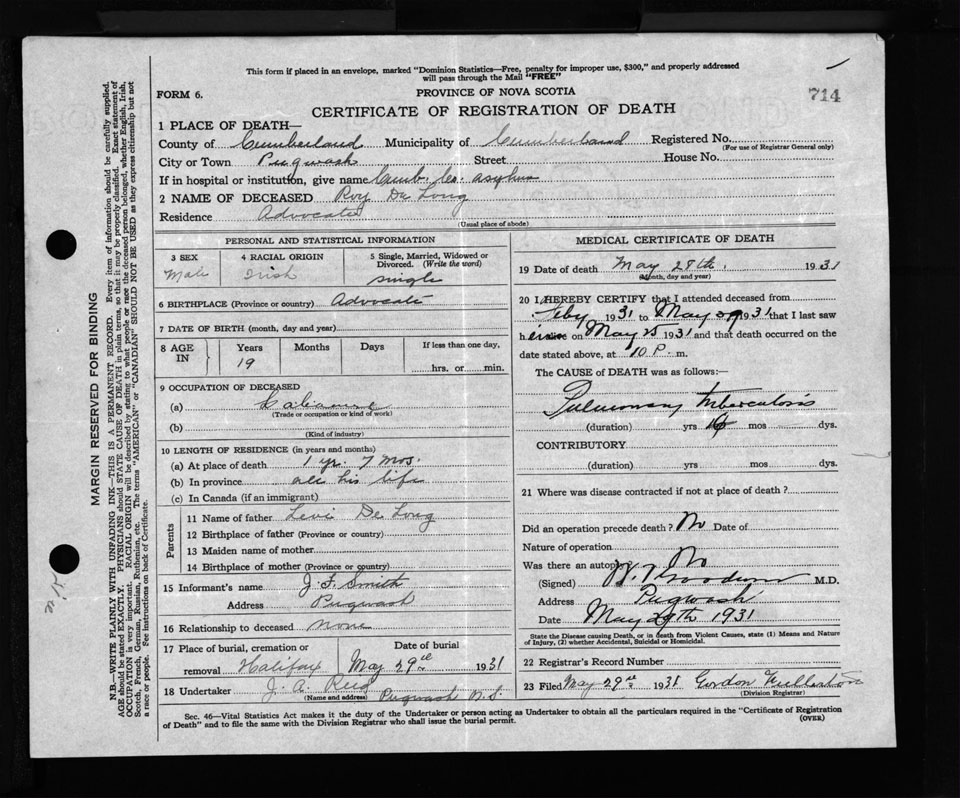 This form if placed in an envelope, marked "Dominion Statistics—Free, penalty for improper use, $300," and properly addressed
will pass through the Mail "FREE"
FORM 6.
PROVINCE OF NOVA SCOTIA
714
CERTIFICATE OF REGISTRATION OF DEATH
1 PLACE OF DEATH—
County of Cumberland Municipality of Cumberland Registered No.
(For use of Registrar General only)
City or Town Pugwash Street House No.
If in hospital or institution, give name Cumb. Co. asylum
2 NAME OF DECEASED Roy De Long
Residence Advocate
(Usual place of abode)
PERSONAL AND STATISTICAL INFORMATION
3 SEX 4 RACIAL ORIGIN 5 Single, Married, Widowed or
Divorced. (Write the word)
Male Irish single
6 BIRTHPLACE (Province or country) Advocate
7 DATE OF BIRTH (month, day and year)
8 AGE IN Years Months Days If less than one day,
19 hrs. or min.
9 OCCUPATION OF DECEASED
(a)
(Trade or occupation or kind of work)
(b)
(Kind of industry)
10 LENGTH OF RESIDENCE (in years and months)
(a) At place of death 1 yr. 7 mos.
(b) In province all his life
(c) In Canada (if an immigrant)
Parents
11 Name of father Levi De Long
12 Birthplace of father (Province or country)
13 Maiden name of mother
14 Birthplace of mother (Province or country)
15 Informant's name J. F. Smith
Address Pugwash
16 Relationship to deceased none
17 Place of burial, cremation or Date of burial
removal Halifax May 29th 1931
18 Undertaker J. A. Pugwash N.S.
(Name and address)
MEDICAL CERTIFICATE OF DEATH
19 Date of death May 28th. 1931
(Month, day and year)
20 I HEREBY CERTIFY that I attended deceased from
Feby 1931 to May 1931 that I last saw
h alive on May 28 1931 and that death occurred on the
date stated above, at 10 P. m.
The CAUSE of DEATH was as follows:—
Pulmonary Tuberculosis
(duration) yrs mos dys.
CONTRIBUTORY
(duration) yrs mos dys.
21 Where was disease contracted if not at place of death?
Did an operation precede death? No Date of
Nature of operation
Was there an autopsy? No
(Signed) M.D.
Address Pugwash
Date May 29th 1931
State the Disease causing Death, or in death from Violent Causes, state (1) Means and Nature
of Injury, (2) whether Accidental, Suicidal or Homicidal.
22 Registrar's Record Number
23 Filed May 29th 1931 Gordon
(Division Registrar)
Sec. 46—Vital Statistics Act makes it the duty of the Undertaker or person acting as Undertaker to obtain all the particulars required in the "Certificate of Registration
of Death" and to file the same with the Division Registrar who shall issue the burial permit.
(OVER)
MARGIN RESERVED FOR BINDING
N.B.—WRITE PLAINLY WITH UNFADING INK—THIS IS A PERMANENT RECORD. Every item of information should be carefully supplied.
AGE should be stated EXACTLY. PHYSICIANS should STATE CAUSE OF DEATH in plain terms, so that it may be properly classified. Exact statement of
OCCUPATION is very important. RACIAL ORIGIN will be described by stating to what people or race the deceased person belonged, whether English, Irish,
Scotch, French, German, Russian, Ruthenian, etc. The terms "AMERICAN" or "CANADIAN" SHOULD NOT BE USED as they express citizenship but not
a race or people. See instructions on back of Certificate.